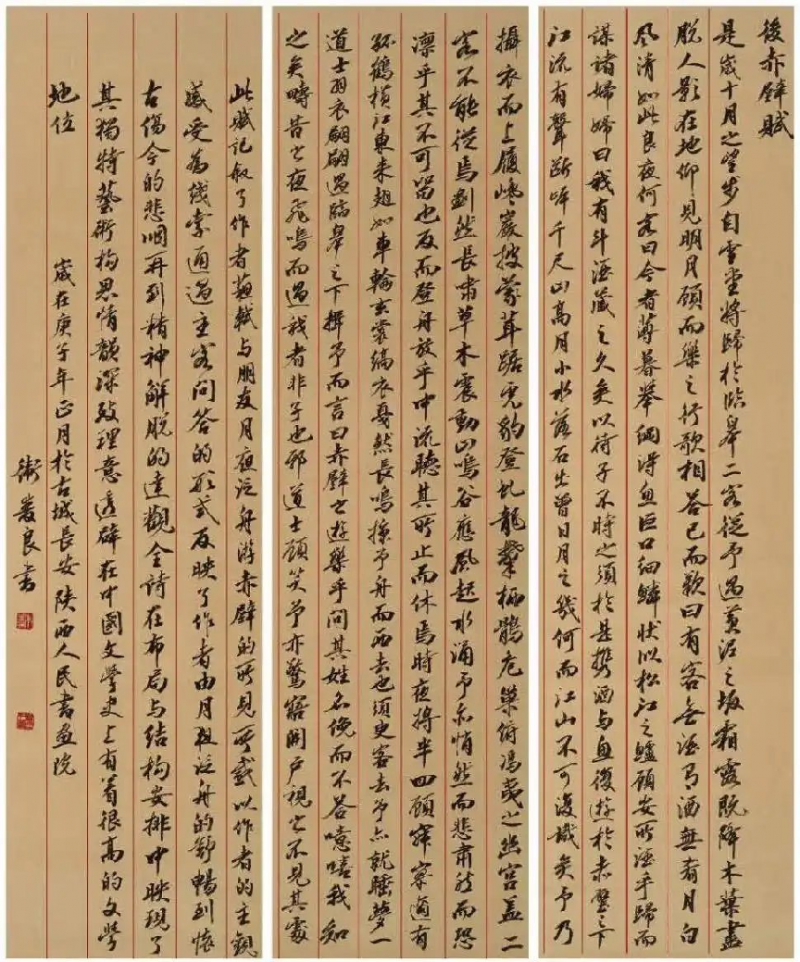 後赤壁賦
是歲十月之望步自雪堂將歸於臨皋二客從予過黃泥之坂霜露既降木葉盡
脫人影在地仰見明月顧而樂之行歌相答已而歎曰有客無酒有酒無肴月白
風清如此良夜何客曰今者薄暮舉網得魚巨口細鱗狀似松江之鱸顧安所酒乎歸而
謀諸婦婦曰我有斗酒藏之久矣以待子不時之須於是攜酒與魚復遊於赤壁之下
江流有聲斷岸千尺山高月小水落石出曾日月之幾何而江山不可復識矣予乃
攝衣而上履巉巖披蒙茸踞虎豹登虬龍攀栖鶻危巢俯馮夷之幽宮蓋二
客不能從焉劃然長嘯草木震動山鳴谷應風起水涌予亦悄然而悲肅然而恐
凜乎其不可留也反而登舟放乎中流聽其所止而休焉時夜將半四顧寂寥適有
孤鶴橫江東來翅如車輪玄裳縞衣戛然長鳴掠予舟而西去也須臾客去予亦就睡夢一
道士羽衣翩翩過臨皋之下揖予而言曰赤壁之遊樂乎問其姓名俛而不答噫嘻我知
之矣疇昔之夜飛鳴而過我者非子也邪道士顧笑予亦驚寤開戶視之不見其處
此賦記叙了作者蘇軾與朋友月夜泛舟游赤壁的所見所感以作者的主觀
感受為綫索通過主客問答的形式反映了作者由月夜泛舟的舒暢到懷
古傷今的悲咽再到精神解脫的達觀全詩在布局與結構安排中映現了
其獨特藝術構思情韻深致理意透辟在中國文學史上有着很高的文學
地位
歲在庚子年正月於古城長安陝西人民書畫院
衛良書